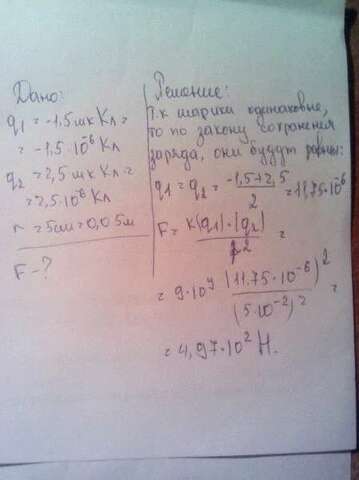 Дано:
q1 = -1,5 мк Кл =
= -1,5·10^-6 Кл
q2 = 2,5 мк Кл =
= 2,5·10^-6 Кл
r = 5см = 0,05м
F - ?
Решение:
Т.к шарики одинаковые,
то по закону сохранения
заряда, они будут равны:
q1 = q2 = (-1,5+2,5)/2 = 11,75·10^-6
F = k|q1|·|q2|/r^2 =
= 9·10^9 (11,75·10^-6)^2/(5·10^-2)^2 =
= 4,97·10^2 Н.